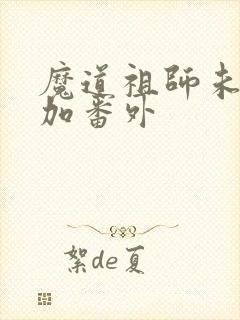 魔道祖師未
加番外
絮de夏